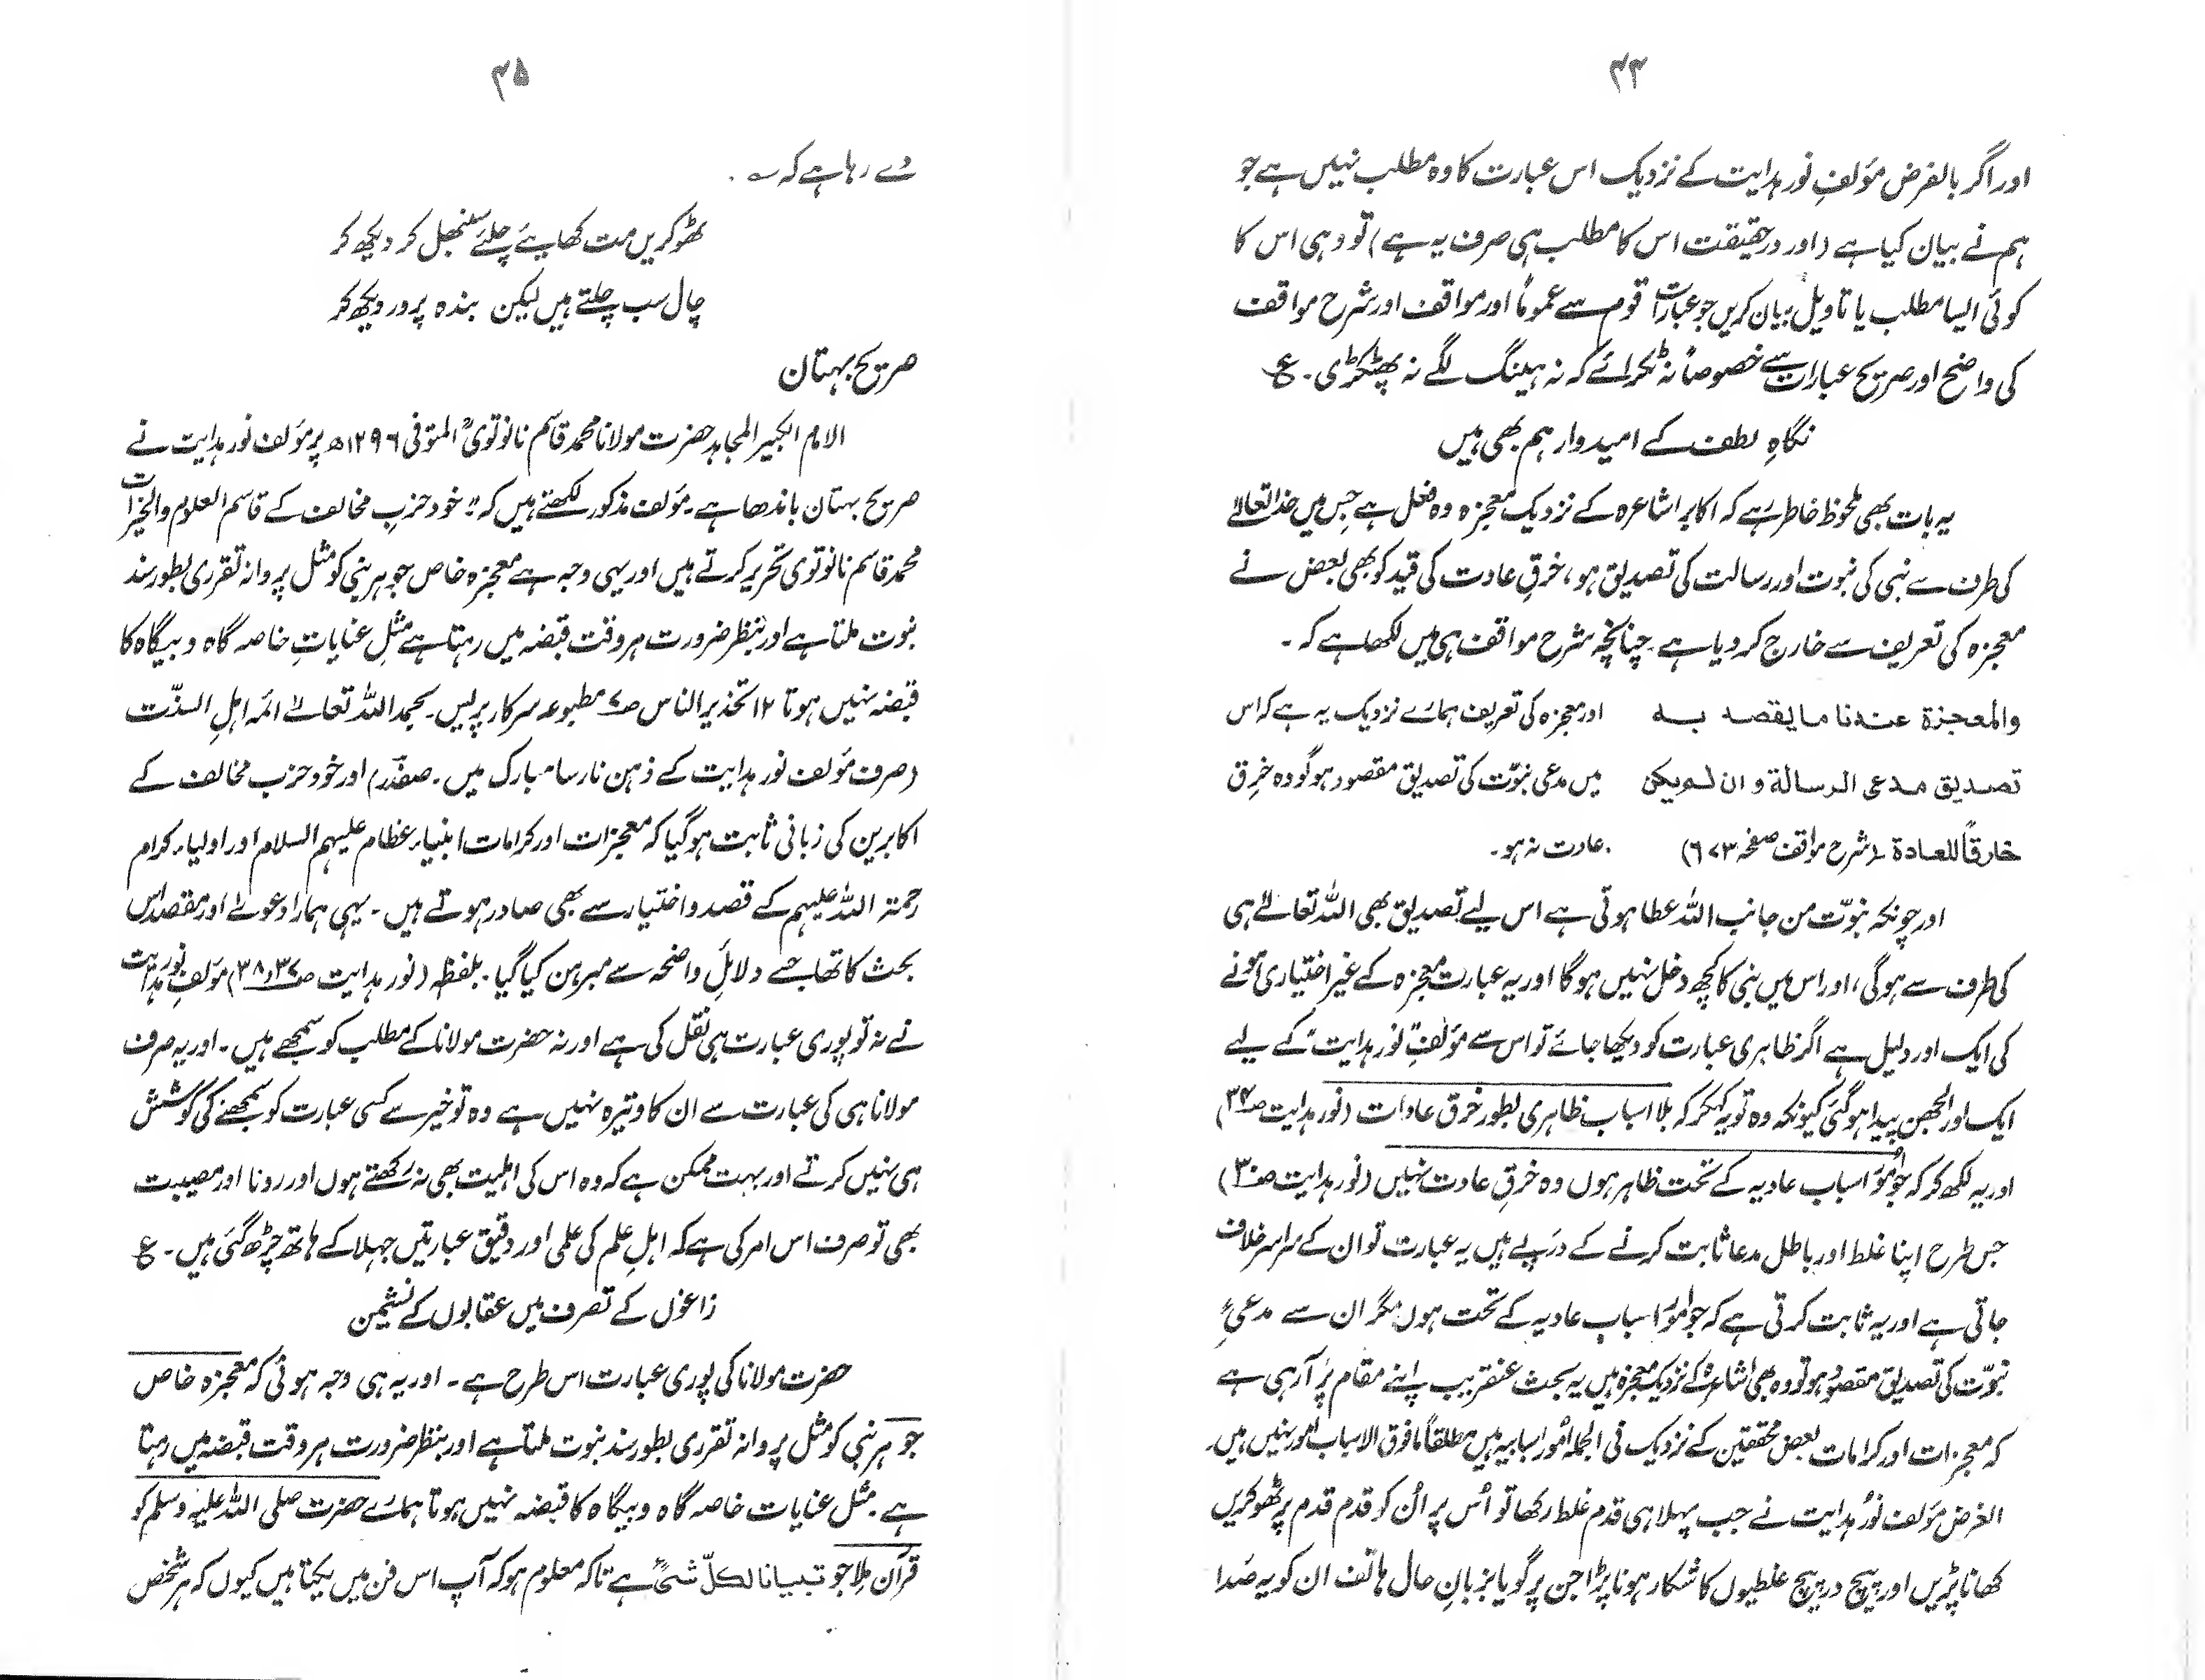 ۴۴
اور اگر بالفرض مؤلفِ نور ہدایت کے نزدیک اس عبارت کا وہ مطلب نہیں ہے جو
ہم نے بیان کیا ہے (اور درحقیقت اس کا مطلب ہی صرف یہ ہے) تو وہی اس کا
کوئی ایسا مطلب یا تاویل بیان کریں جو عبارات قوم سے عموماً اور مواقف اور شرح مواقف
کی واضح اور صریح عبارات سے خصوصاً نہ ٹکرائے کہ نہ ہینگ لگے نہ پھٹکڑی۔ ع
نگاہِ لطف کے امیدوار ہم بھی ہیں
یہ بات بھی ملحوظ خاطر رہے کہ اکابر اشاعرہ کے نزدیک معجزہ وہ فعل ہے جس میں خدا تعالیٰ
کی طرف سے نبی کی نبوت اور رسالت کی تصدیق ہو، خرقِ عادت کی قید کو بھی بعض نے
معجزہ کی تعریف سے خارج کر دیا ہے۔ چنانچہ شرح مواقف ہی میں لکھا ہے کہ۔
والمعجزة عندنا ما يقصد به اور معجزہ کی تعریف ہمارے نزدیک یہ ہے کہ اس
تصديق مدعی الرسالة و ان لم يکن میں مدعی نبوّت کی تصدیق مقصود ہو گو وہ خرق
خارقاً للعادة (شرح مواقف صفحہ ۶۷۳) عادت نہ ہو۔
اور چونکہ نبوّت من جانب اللہ عطا ہوتی ہے اس لیے تصدیق بھی اللہ تعالیٰ ہی
کی طرف سے ہوگی، اور اس میں نبی کا کچھ دخل نہیں ہوگا اور یہ عبارت معجزہ کے غیر اختیاری ہونے
کی ایک اور دلیل ہے اگر ظاہری عبارت کو دیکھا جائے تو اس سے مؤلفِ "نور ہدایت" کے لیے
ایک اور الجھن پیدا ہوگئی کیونکہ وہ تو یہ کہکر کہ بلا اسباب ظاہری بطور خرق عادات (نور ہدایت صـ۳۴)
اور یہ لکھ کر کہ جو امور اسباب عادیہ کے تحت ظاہر ہوں وہ خرقِ عادت نہیں (نور ہدایت صـ۳۰)
جس طرح اپنا غلط اور باطل مدعا ثابت کرنے کے درپے ہیں یہ عبارت تو ان کے سراسر خلاف
جاتی ہے اور یہ ثابت کرتی ہے کہ جو امور اسباب عادیہ کے تحت ہوں مگر ان سے مدعیِ
نبوّت کی تصدیق مقصود ہو تو وہ بھی اشاعرہ کے نزدیک معجزہ ہیں یہ بحث عنقریب اپنے مقام پر آرہی ہے
کہ معجزات اور کرامات بعض محققین کے نزدیک فی الجملہ امور اسبابیہ ہیں مطلقاً مافوق الاسباب امور نہیں ہیں۔
الغرض مؤلف نور ہدایت نے جب پہلا ہی قدم غلط رکھا تو اُس پر اُن کو قدم قدم پر ٹھوکریں
کھانا پڑیں اور پیچ در پیچ غلطیوں کا شکار ہونا پڑا جن پر گویا بزبانِ حال ہاتف ان کو یہ صدا
۴۵
دے رہا ہے کہ ؎
ٹھوکریں مت کھایئے چلئے سنبھل کر دیکھ کر
چال سب چلتے ہیں لیکن بندہ پرور دیکھ کر
صریح بہتان
الامام الکبیر المجاہد حضرت مولانا محمد قاسم نانوتویؒ المتوفی ۱۲۹۶ھ پر مؤلف نور ہدایت نے
صریح بہتان باندھا ہے۔ مؤلف مذکور لکھتے ہیں کہ "خود حزبِ مخالف کے قاسم العلوم والخیرات
محمد قاسم نانوتوی تحریر کرتے ہیں اور یہی وجہ ہے معجزہ خاص جو ہر نبی کو مثل پروانہ تقرری بطور سند
نبوت ملتا ہے اور بنظر ضرورت ہر وقت قبضہ میں رہتا ہے مثلِ عنایاتِ خاصہ گاہ و بیگاہ کا
قبضہ نہیں ہوتا ۱۲ تحذیر الناس صـ۷ مطبوعہ سرکار پریس۔ بحمد اللہ تعالےٰ ائمہ اہل السنّت
(صرف مؤلف نور ہدایت کے ذہن نارسا مبارک میں۔ صفدر) اور خود حزب مخالف کے
اکابرین کی زبانی ثابت ہوگیا کہ معجزات اور کرامات انبیاء عظام علیہم السلام اور اولیاء کرام
رحمۃ اللہ علیہم کے قصد و اختیار سے بھی صادر ہوتے ہیں۔ یہی ہمارا دعویٰ اور مقصد اس
بحث کا تھا جسے دلائلِ واضحہ سے مبرہن کیا گیا۔ بلفظہ (نور ہدایت صـ۳۷، ۳۸) مؤلفِ نور ہدایت
نے نہ تو پوری عبارت ہی نقل کی ہے اور نہ حضرت مولانا کے مطلب کو سمجھے ہیں۔ اور یہ صرف
مولانا ہی کی عبارت سے ان کا وتیرہ نہیں ہے وہ تو خیر سے کسی عبارت کو سمجھنے کی کوشش
ہی نہیں کرتے اور بہت ممکن ہے کہ وہ اس کی اہلیت بھی نہ رکھتے ہوں اور رونا اور مصیبت
بھی تو صرف اس امر کی ہے کہ اہلِ علم کی علمی اور دقیق عبارتیں جہلا کے ہاتھ چڑھ گئی ہیں۔ ع
زاغوں کے تصرف میں عقابوں کے نشیمن
حضرت مولانا کی پوری عبارت اس طرح ہے۔ اور یہ ہی وجہ ہوئی کہ معجزہ خاص
جو ہر نبی کو مثل پروانہ تقرری بطور سند نبوت ملتا ہے اور بنظر ضرورت ہر وقت قبضہ میں رہتا
ہے۔ مثل عنایات خاصہ گاہ و بیگاہ کا قبضہ نہیں ہوتا ہمارے حضرت صلی اللہ علیہ وسلم کو
قرآن ملا جو تبیانا لکلّ شیئ ہے تاکہ معلوم ہو کہ آپ اس فن میں یکتا ہیں کیوں کہ ہر شخص